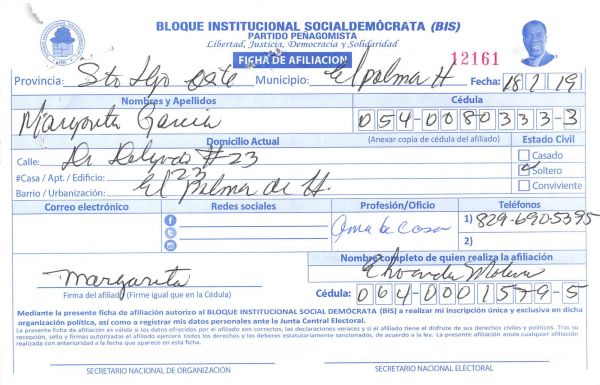 BLOQUE INSTITUCIONAL SOCIALDEMÓCRATA (BIS)
PARTIDO PEÑAGOMISTA
Libertad, Justicia, Democracia y Solidaridad
FICHA DE AFILIACION 12161
Provincia: Sto Dgo Oste Municipio: El palma H Fecha: 18/2/19
Nombres y Apellidos Cédula
Margarita Garcia 054-0080333-3
Domicilio Actual (Anexar copia de cédula del afiliado) Estado Civil
Calle: Dr Delgado #23 Casado
#Casa / Apt. / Edificio: 23 Soltero
Barrio / Urbanización: El Palmar de H. Conviviente
Correo electrónico Redes sociales Profesión/Oficio Teléfonos
Ama de Casa 1) 829-6905395
2)
Nombre completo de quien realiza la afiliación
Margarita Molina
Firma del afiliado (Firme igual que en la Cédula) Cédula: 064-0001579-5
Mediante la presente ficha de afiliación autorizo al BLOQUE INSTITUCIONAL SOCIAL DEMÓCRATA (BIS) a realizar mi inscripción única y exclusiva en dicha
organización política, así como a registrar mis datos personales ante la Junta Central Electoral.
La presente ficha de afiliación es válida si los datos ofrecidos por el afiliado son correctos, las declaraciones veraces y si el afiliado tiene el disfrute de sus derechos civiles y políticos. Tras su
recepción, sello y firmas autorizadas el afiliado ejercerá todos los derechos y los deberes estatutariamente sancionados, de acuerdo a la ley. La presente afiliación anula cualquier afiliación
realizada con anterioridad a la fecha que aparece en esta ficha.
SECRETARIO NACIONAL DE ORGANIZACIÓN SECRETARIO NACIONAL ELECTORAL